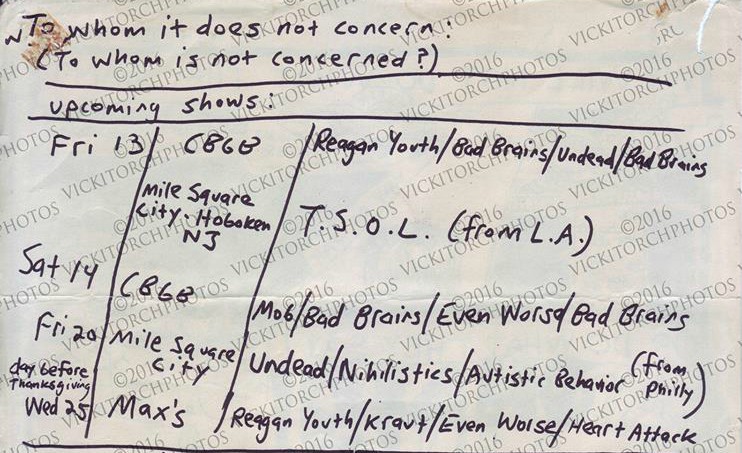 To whom it does not concern:
(To whom is not concerned?)
upcoming shows:
Fri 13 / CBGB / Reagan Youth/Bad Brains/Undead/Bad Brains
Mile Square
City · Hoboken
NJ
T.S.O.L. (from L.A.)
Sat 14
CBGB
Mob/Bad Brains/Even Worse/Bad Brains
Fri 20
Mile Square
City
Undead/Nihilistics/Autistic Behavior (from
Philly)
day before
Thanksgiving
Wed 25 / Max's / Reagan Youth/Kraut/Even Worse/Heart Attack
©2016
VICKITORCHPHOTOS